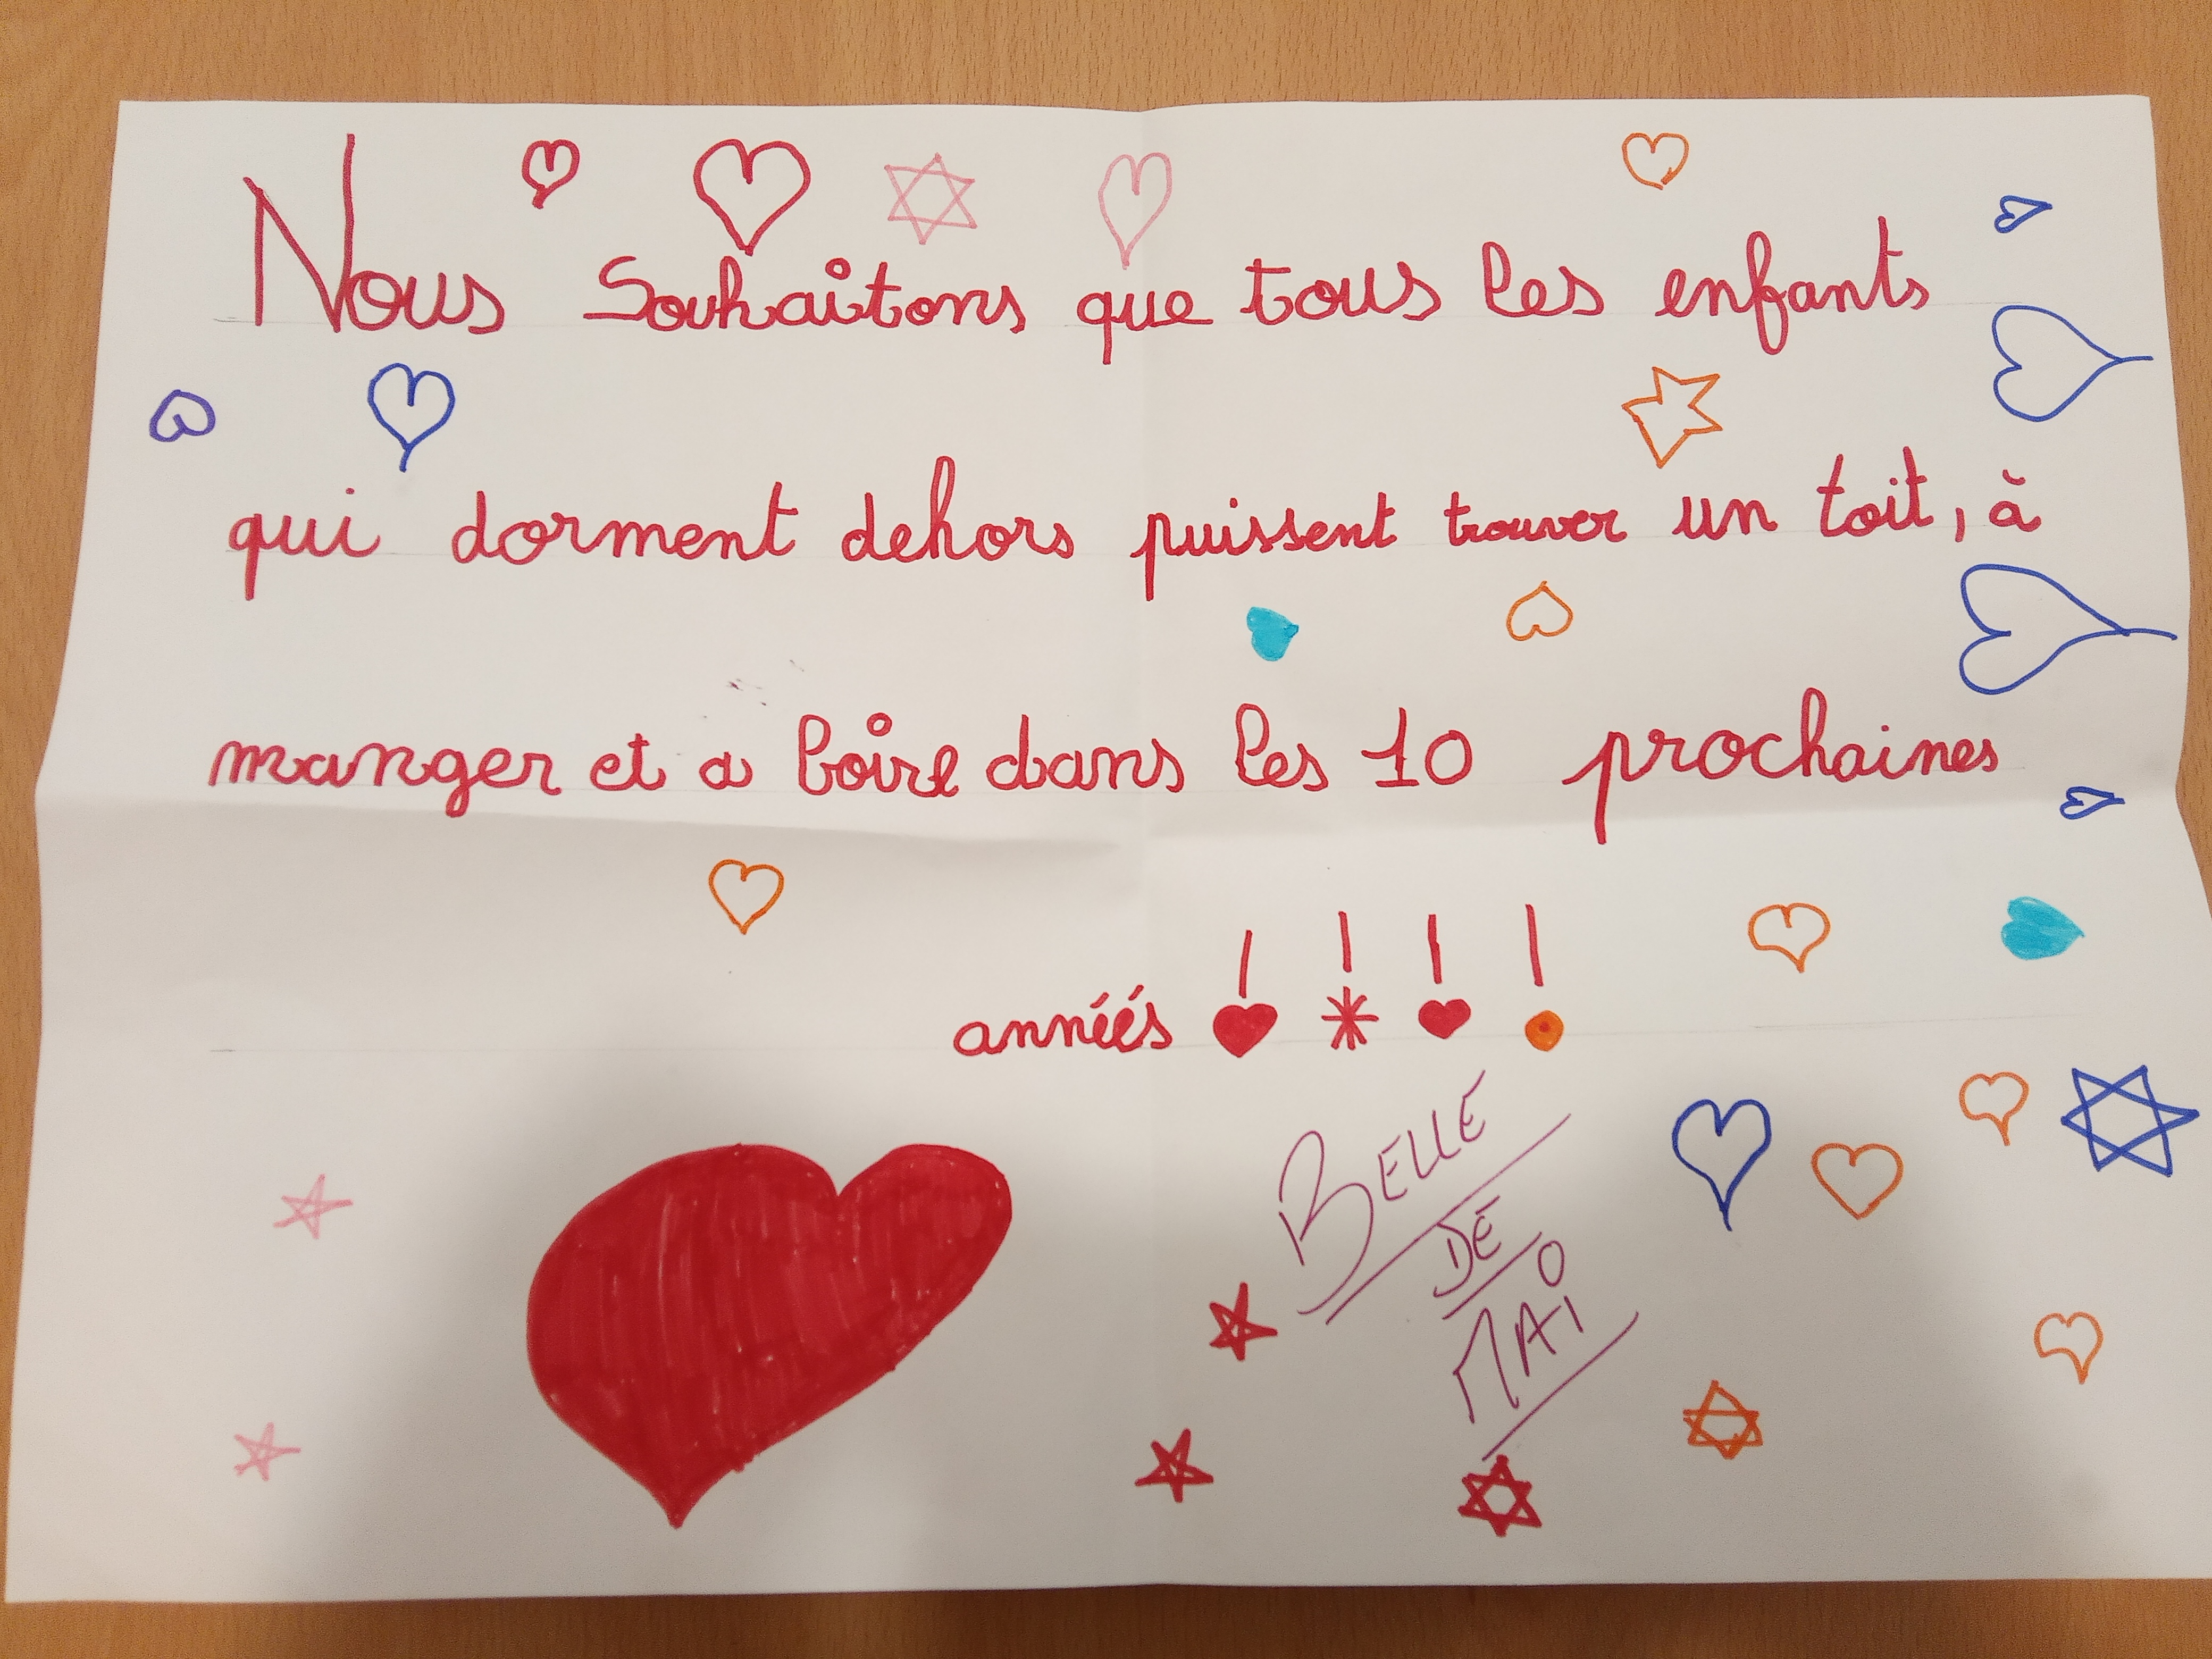 Nous Souhaitons que tous les enfants
qui dorment dehors puissent trouver un toit, à
manger et a boire dans les 10 prochaines
annéés ! ! ! !
BELLE
DE
MAI